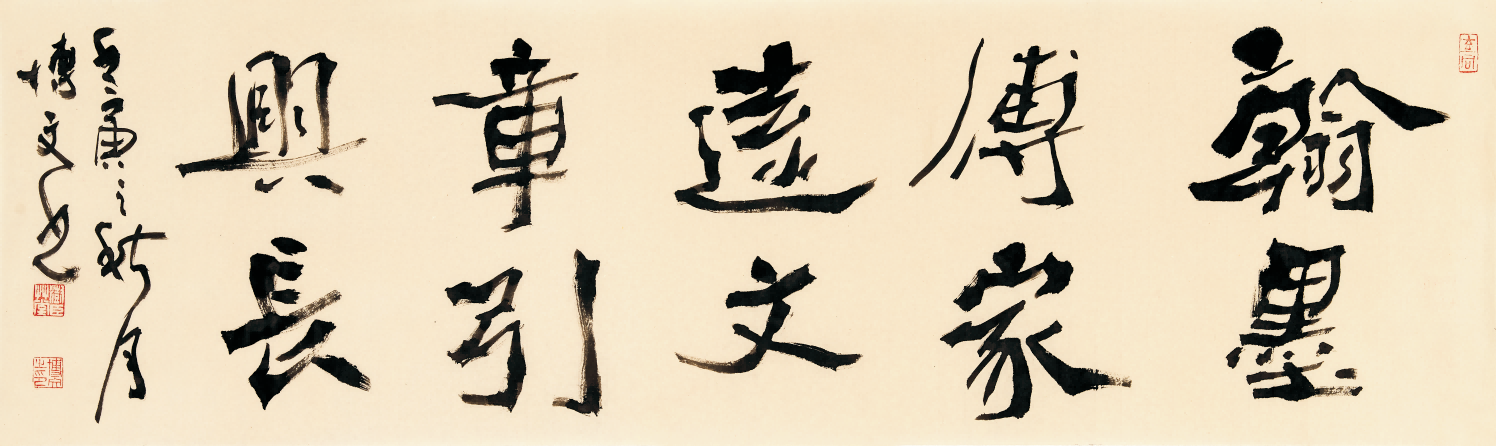 翰墨
傳家
遠文
章引
興長
寅之秋月
博文